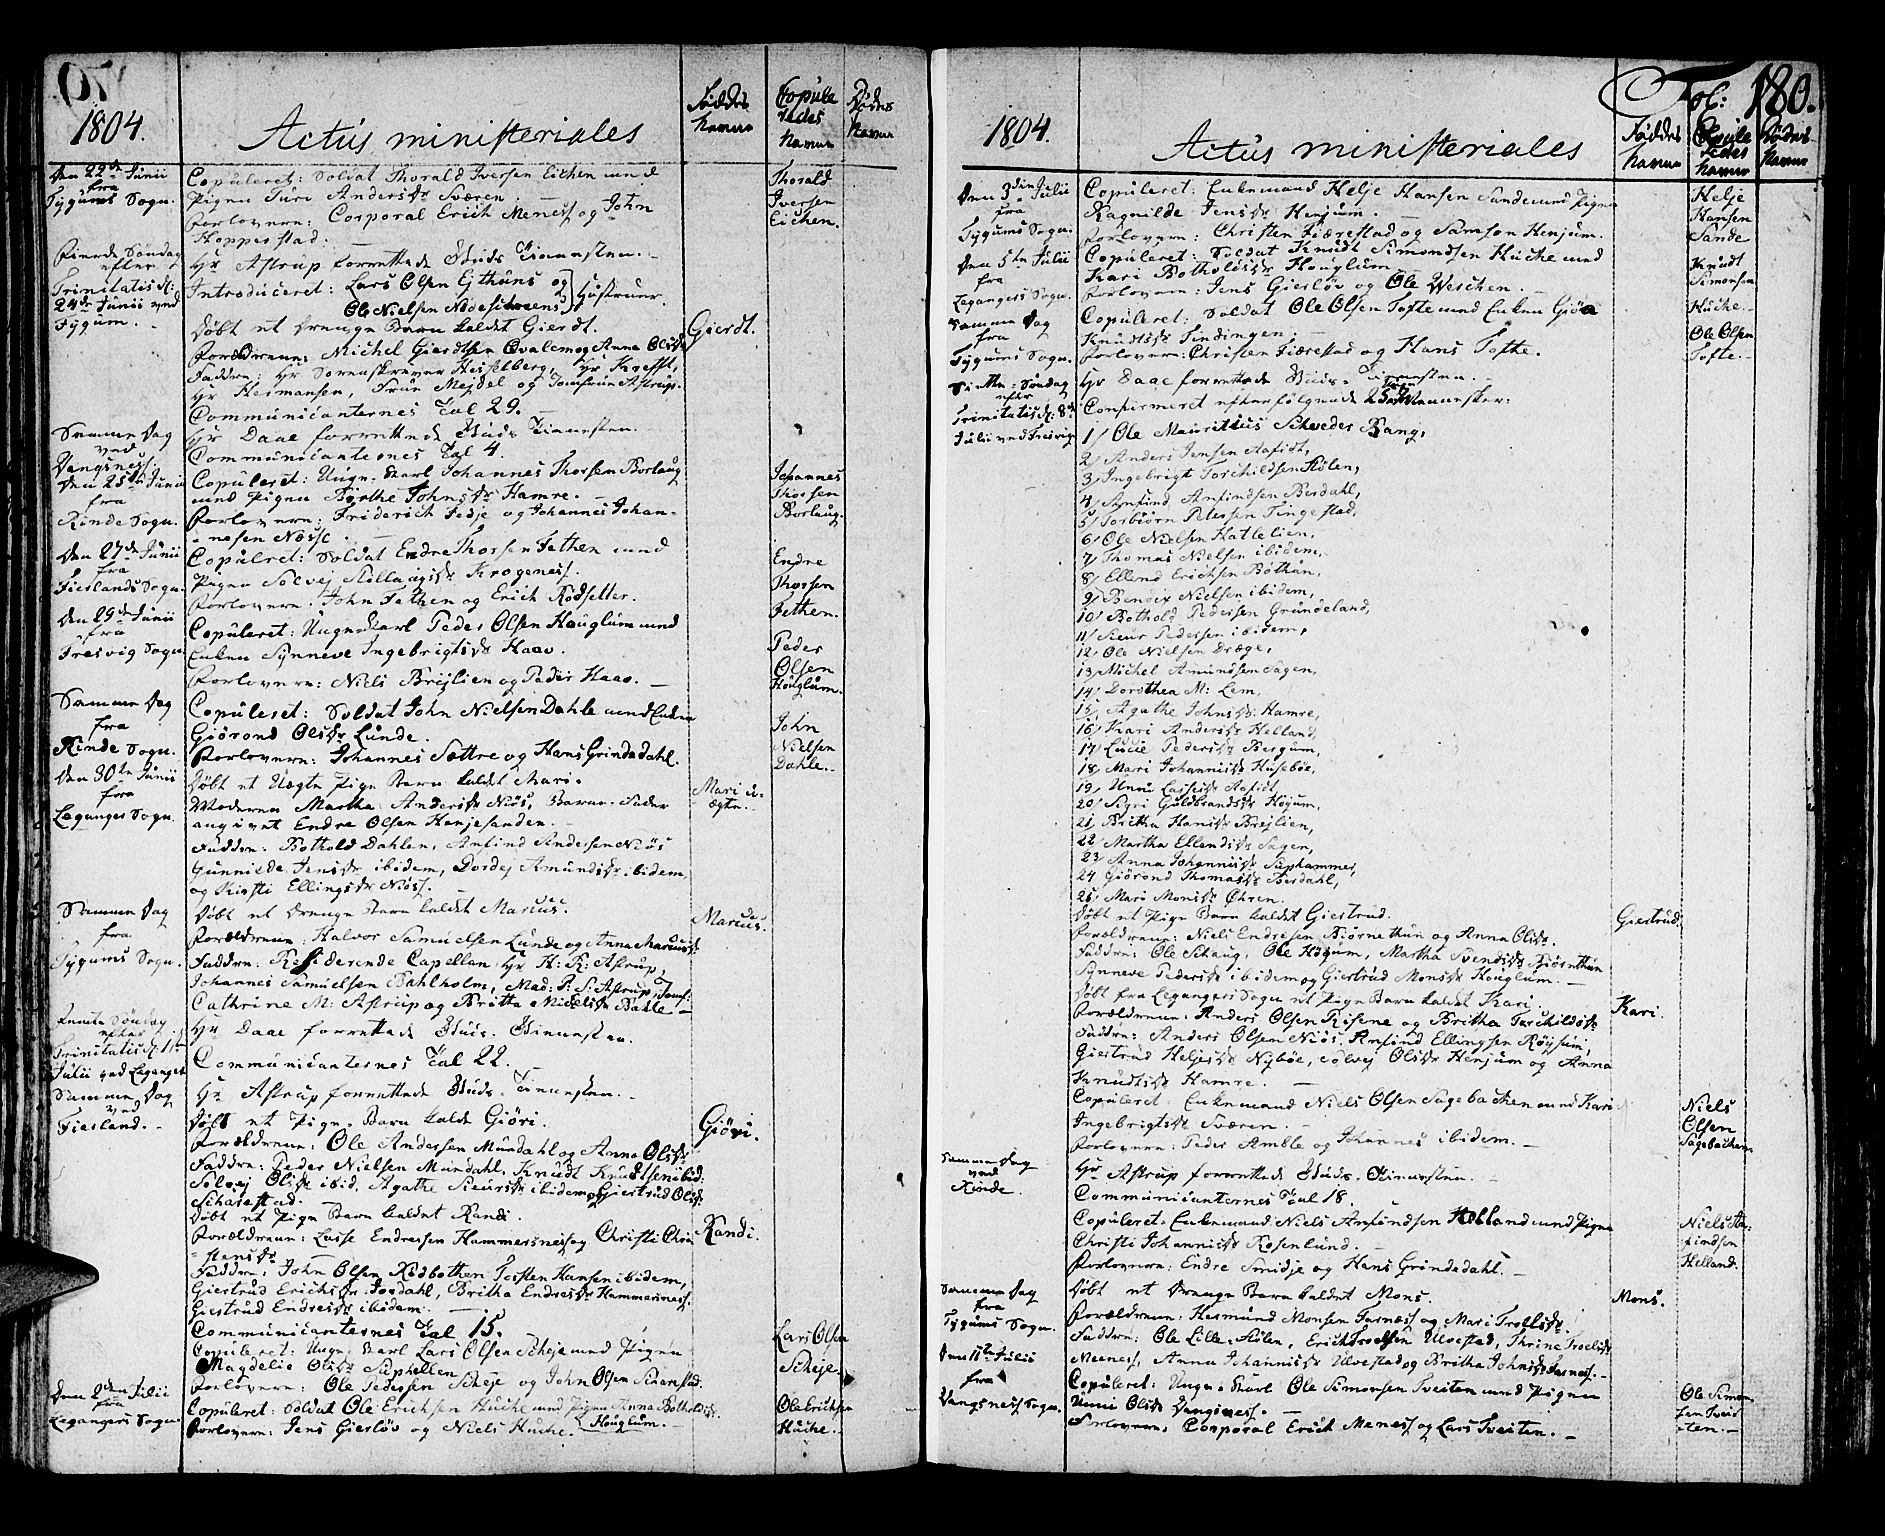 1804.
Actus ministeriales
Føddes Navne
Copule redes Navne
Dødes Navne
Den 22de Junii fra Tygums Sogn.
Copuleret: Soldat Thorald Iversen Eichen med
Pigen Turi Andersdr Sværen.
Forlovern: Corporal Erich Menes og John
Hopperstad.
Thorald Iversen Eichen.
Fierde Søndag efter Trinitatis d: 24de Junii ved Tygum.
Hr Astrup forrettede Guds Tienesten.
Introduceret: Lars Olsen Ejthuns og
Ole Nielsen Nødesitrens Hustruer.
Døbt et Drenge Barn kaldet Gierdt.
Gierdt.
Forældrene: Michel Gierdtsen Qvalem og Anna Olsdr
Faddre: Hr Sorenskriver Hesselberg, Hr Krefft,
Hr Hermansen, Frue Mejdel og Jomfrue Astrup.
Communicanternes Tal 29.
Samme Dag ved Vangsness.
Hr Daae forrettede Guds Tienesten.
Communicanternes Tal 4.
Den 25de Junii fra Rinde Sogn.
Copuleret: Unge Karl Johannes Thorsen Borlaug
med Pigen Børthe Johnsdr Hamre.
Forlovern: Friderich Fedje og Johannes Johan-
nesen Næsse.
Johannes Thorsen Borlaug.
Den 27de Junii fra Fieslands Sogn.
Copuleret: Soldat Endre Thorsen Fethen med
Pigen Solvej Stillaugsdr Krogenes.
Forlovern: John Fethen og Erich Rødsetter.
Endre Thorsen Fethen.
Den 29de Junii fra Fresvig Sogn.
Copuleret: Unge Karl Peder Olsen Houglum med
Enken Synneve Ingebrigtsdr Haav.
Forlovern: Niels Brejlien og Peder Haav.
Peder Olsen Houglum.
Samme Dag fra Rinde Sogn.
Copuleret: Soldat John Nielsen Dahle med Enken
Giørond Olsdr Lunde.
Forlovern: Johannes Sættre og Hans Grindedahl.
John Nielsen Dahle.
Den 30te Junii fra Leganger Sogn.
Døbt et Uægte Pige Barn kaldet Mari.
Mari u- ægte.
Moderen Martha Andersdr Niøs, Barne-Fader
angivet Endre Olsen Henjesanden.
Faddre: Bothold Dahlen, Anfind Andersen Niøs
Gunnilde Jensdr ibidem, Dordej Amundsdr ibidem
og Kirsti Ellingsdr Niøs.
Samme Dag fra Tygums Sogn.
Døbt et Drenge Barn kaldet Marcus.
Marcus.
Forældrene: Halvor Samuelsen Lunde og Anna Marcusdr
Faddre: Residerende Capellan Hr H: R: Astrup,
Johannes Samuelsen Bahlholm, Mad: P. S: Astrup, Jomf:
Cathrine M: Astrup og Britta Nielsdr Bahle.
Femte Søndag efter Trinitatis d: 1ste Julii ved Leganger
Hr Daae forrettede Guds Tienesten.
Communicanternes Tal 22.
Samme Dag ved Fiesland.
Hr Astrup forrettede Guds Tienesten.
Døbt et Pige Barn kaldt Giøri.
Giøri.
Forældrene: Ole Andersen Mundahl og Anna Olsdr
Faddre: Peder Nielsen Mundahl, Knudt Knudtsen ibid:
Solvej Olsdr ibid, Agathe Sieursdr ibidem og Giertrud Olsdr
Scharestad.
Døbt et Pige Barn kaldet Randi.
Randi.
Forældrene: Lasse Endresen Hammersnes og Christi Chri-
stensdr
Faddre: John Olsen Rødbotten, Torsten Hansen ibidem,
Giertrud Erichsdr Jordahl, Britha Endresdr Hammersnes.
Giertrud Endresdr ibidem.
Communicanternes Tal 15.
Copuleret: Unge Karl Lars Olsen Scheje med Pigen
Magdelie Olsdr Suphellen.
Forlovern: Ole Pedersen Scheje og John Olsen Scharestad.
Lars Olsen Scheje.
Den 2den Julii fra Legangers Sogn.
Copuleret: Soldat Ole Erichsen Huche med Pigen Anna Botholdsdr
Houglum.
Forlovern: Jens Gierløv og Niels Huche.
Ole Erichsen Huche.
Fol: 180.
1804.
Actus ministeriales
Føddes Navne
Copule redes Navne
Dødes Navne
Den 3die Julii fra Tygums Sogn.
Copuleret: Enkemand Helje Hansen Sande med Pigen
Ragnilde Jensdr Henjum.
Forlovern: Christen Fiærestad og Samson Henjum.
Helje Hansen Sande
Den 5te Julii fra Legangers Sogn.
Copuleret: Soldat Knudt Simondsen Huche med
Kari Botholdsdr Houglum.
Forlovern: Jens Gierløv og Ole Weschen.
Knudt Simonsen Huche.
Samme Dag fra Tygums Sogn.
Copuleret: Soldat Ole Olsen Tofte med Enken Giøa
Knudtsdr Tindingen.
Forlovern: Christen Fiærestad og Hans Tofte.
Ole Olsen Tofte.
Siette Søndag efter Trinitatis d: 8de Julii ved Fresvig.
Hr Daae forrettede Guds-Tienesten.
Confirmeret efterfølgende 25 unge Mennesker:
1/ Ole Mauritius Schveder Rang,
2/ Anders Jensen Aafidt,
3/ Ingebrigt Torchildsen Stølen,
4/ Anfind Anfindsen Berdahl,
5/ Torbiørn Petersen Tingestad,
6/ Ole Nielsen Hatlelien,
7/ Thomas Nielsen ibidem,
8/ Ellend Erichsen Bøthun,
9/ Bendix Nielsen ibidem,
10/ Bothold Pedersen Grundeland,
11/ Sieur Pedersen ibidem,
12/ Ole Nielsen Dræge,
13/ Michel Amundsen Sagen,
14/ Dorothea M: Lem,
15/ Agathe Johnsdr Hamre,
16/ Kari Andersdr Helland,
17/ Lucie Pedersdr Bergum,
18/ Mari Johannisdr Husebøe,
19/ Unni Lassesdr Aafidt,
20/ Sigri Guldbrandsdr Høyum,
21/ Britha Hansdr Brejlien,
22/ Martha Ellendsdr Sagen,
23/ Anna Johannisdr Suphammer,
24/ Giørond Thomasdr Berdahl,
25/ Mari Monsdr Øhren.
Døbt et Pige Barn kaldet Giertrud.
Giertrud.
Forældrene: Niels Endresen Biørnethun og Anna Olsdr.
Faddre: Ole Schaug, Ole Høyum, Martha Svendsdr Biørnthun
Synneve Pedersdr ibidem og Giertrud Monsdr Houglum.
Døbt fra Legangers Sogn et Pige Barn kaldet Kari.
Kari.
Forældrene: Anders Olsen Risene og Britha Torchildsdr
Faddre: Anders Olsen Niøs, Anfind Ellingsen Røysum,
Giertrud Heljesdr Nybøe, Solvej Olsdr Henjum og Anna
Knudtsdr Hamre.
Copuleret: Enkemand Niels Olsen Sagebachen med Kari
Ingebrigtsdr Sværen.
Forlovern: Peder Amble og Johannes ibidem.
Niels Olsen Sagebachen
Samme Dag ved Rinde.
Hr Astrup forrettede Guds-Tienesten.
Communicanternes Tal 18.
Copuleret: Enkemand Niels Anfindsen Helland med Pigen
Christi Johannisdr Rosenlund.
Forlovern: Endre Smidje og Hans Grindedahl.
Niels An- findsen Helland.
Samme Dag fra Tygums Sogn.
Døbt et Drenge Barn kaldet Mons.
Mons.
Forældrene: Hermund Monsen Farnæss og Mari Trolsdr.
Faddre: Ole Lille-Støten, Erich Troelsen Ulvestad, Thrine Troelsdr
Meenes, Anna Johannisdr Ulvestad og Britha Johnsdr Farness.
Den 11te Julii fra Vangsness Sogn.
Copuleret: Unge Karl Ole Simonsen Tveiten med Pigen
Unni Olsdr Vangsness.
Forlovern: Corporal Erich Meness og Lars Tveiten.
Ole Simon- sen Tvei- ten.